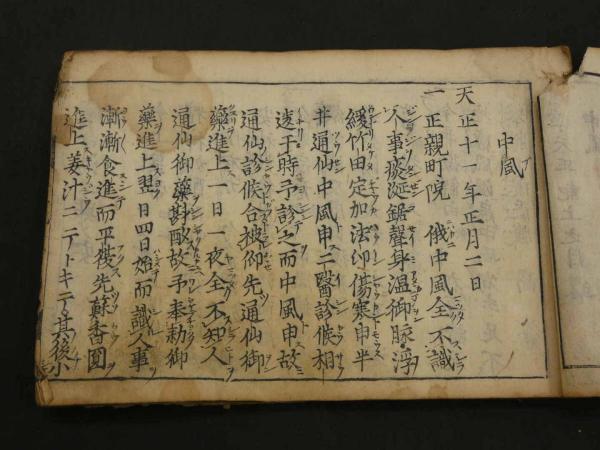 中風
天正十一年正月二日
一 正親町院 俄中風全不識
人事痰涎鋸聲身温御脉浮
緩竹田定加法印傷寒申半
井通仙中風申二醫診候相
違于時予診之而中風申故
通仙診候台被仰先通仙御
藥進上一日一夜全不知人
通仙御藥斟酌故予奉勅御
藥進上翌日四日始而識人事
漸漸食進而平復先蘇香圓
進上姜汁ニテトキテ其後小